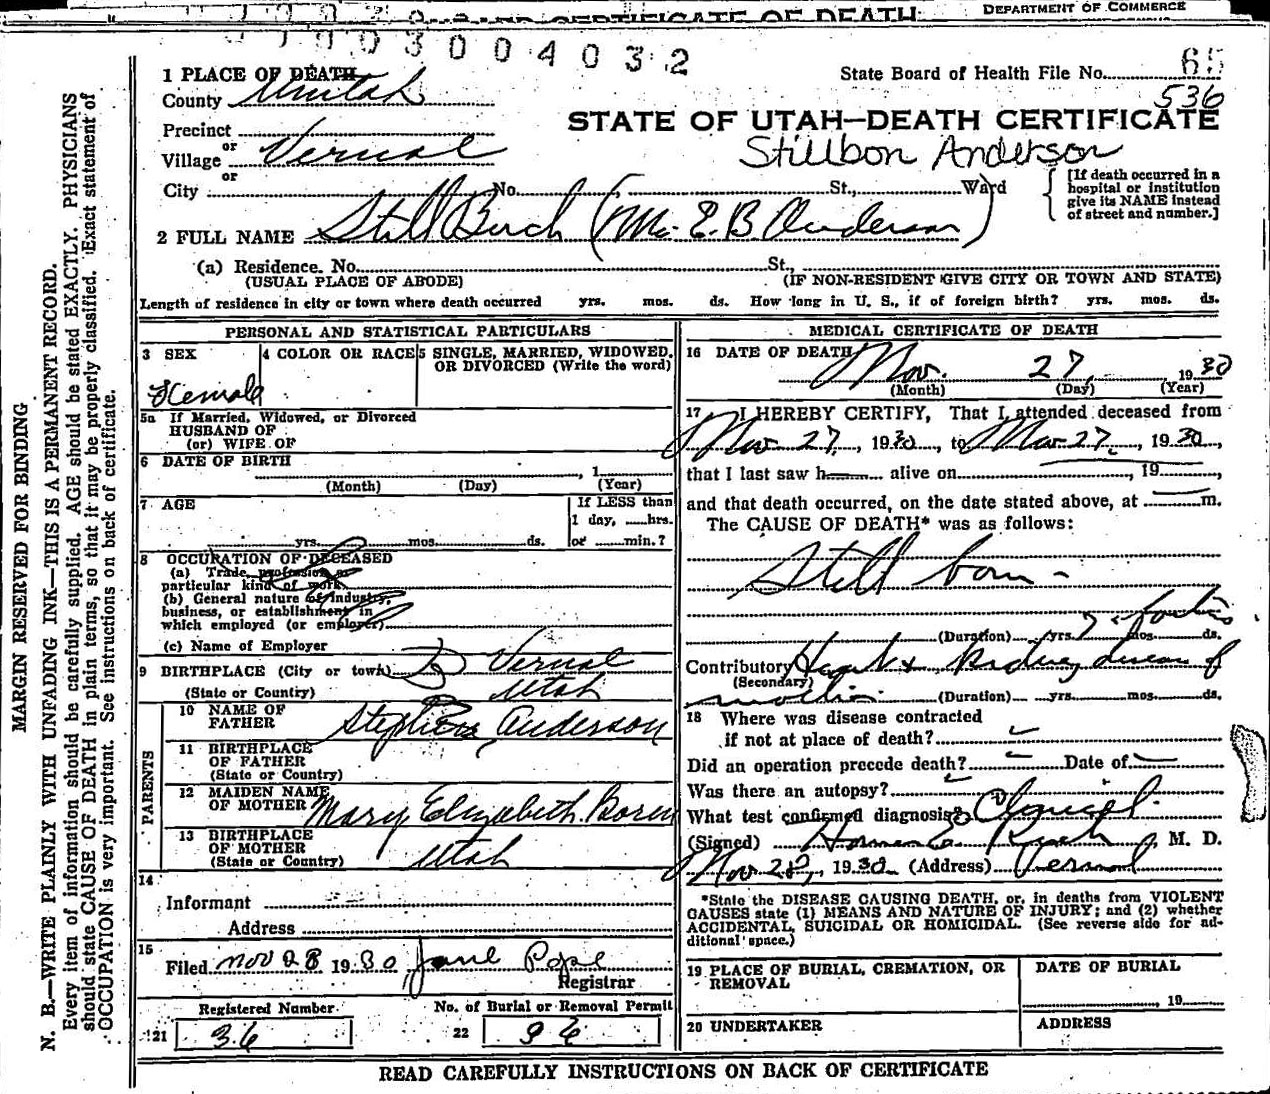 CERTIFICATE OF DEATH
DEPARTMENT OF COMMERCE
3004032
1 PLACE OF DEATH
State Board of Health File No. 65
County Uintah
536
STATE OF UTAH—DEATH CERTIFICATE
Precinct
or
Village Vernal
Stillbon Anderson
or
City No. St., Ward
[If death occurred in a
hospital or institution
give its NAME instead
of street and number.]
2 FULL NAME Still Birth (Mrs. E. B. Anderson)
(a) Residence. No. St.
(USUAL PLACE OF ABODE) (IF NON-RESIDENT GIVE CITY OR TOWN AND STATE)
Length of residence in city or town where death occurred yrs. mos. ds. How long in U. S., if of foreign birth? yrs. mos. ds.
PERSONAL AND STATISTICAL PARTICULARS
3 SEX
4 COLOR OR RACE
5 SINGLE, MARRIED, WIDOWED,
OR DIVORCED (Write the word)
Female
5a If Married, Widowed, or Divorced
HUSBAND OF
(or) WIFE OF
6 DATE OF BIRTH
, 1
(Month) (Day) (Year)
7 AGE
If LESS than
1 day, hrs.
yrs. mos. ds. or min.?
8 OCCUPATION OF DECEASED
(a) Trade, profession or
particular kind of work
(b) General nature of industry,
business, or establishment in
which employed (or employer)
(c) Name of Employer
9 BIRTHPLACE (City or town) Vernal
(State or Country) Utah
PARENTS
10 NAME OF
FATHER Stephen Anderson
11 BIRTHPLACE
OF FATHER
(State or Country)
12 MAIDEN NAME
OF MOTHER Mary Elizabeth Boren
13 BIRTHPLACE
OF MOTHER
(State or Country) Utah
14
Informant
Address
15
Filed Nov 28 1930 Jane Pope
Registrar
Registered Number
No. of Burial or Removal Permit
21 36
22 96
MEDICAL CERTIFICATE OF DEATH
16 DATE OF DEATH
Nov. 27, 1930
(Month) (Day) (Year)
17 I HEREBY CERTIFY, That I attended deceased from
Nov 27, 1930, to Nov 27, 1930,
that I last saw h alive on , 19 ,
and that death occurred, on the date stated above, at m.
The CAUSE OF DEATH* was as follows:
Still born -
(Duration) yrs. 7 mos. ds.
Contributory Heart & Kidney disease of
(Secondary)
mother (Duration) yrs. mos. ds.
18 Where was disease contracted
if not at place of death?
Did an operation precede death? Date of
Was there an autopsy?
What test confirmed diagnosis? Clinical.
(Signed) Homer E. Rich, M. D.
Nov 28, 1930 (Address) Vernal
*State the DISEASE CAUSING DEATH, or, in deaths from VIOLENT
CAUSES state (1) MEANS AND NATURE OF INJURY; and (2) whether
ACCIDENTAL, SUICIDAL OR HOMICIDAL. (See reverse side for ad-
ditional space.)
19 PLACE OF BURIAL, CREMATION, OR
REMOVAL
DATE OF BURIAL
, 19
20 UNDERTAKER
ADDRESS
READ CAREFULLY INSTRUCTIONS ON BACK OF CERTIFICATE
MARGIN RESERVED FOR BINDING
N. B.—WRITE PLAINLY WITH UNFADING INK—THIS IS A PERMANENT RECORD.
Every item of information should be carefully supplied. AGE should be stated EXACTLY. PHYSICIANS
should state CAUSE OF DEATH in plain terms, so that it may be properly classified. Exact statement of
OCCUPATION is very important. See instructions on back of certificate.